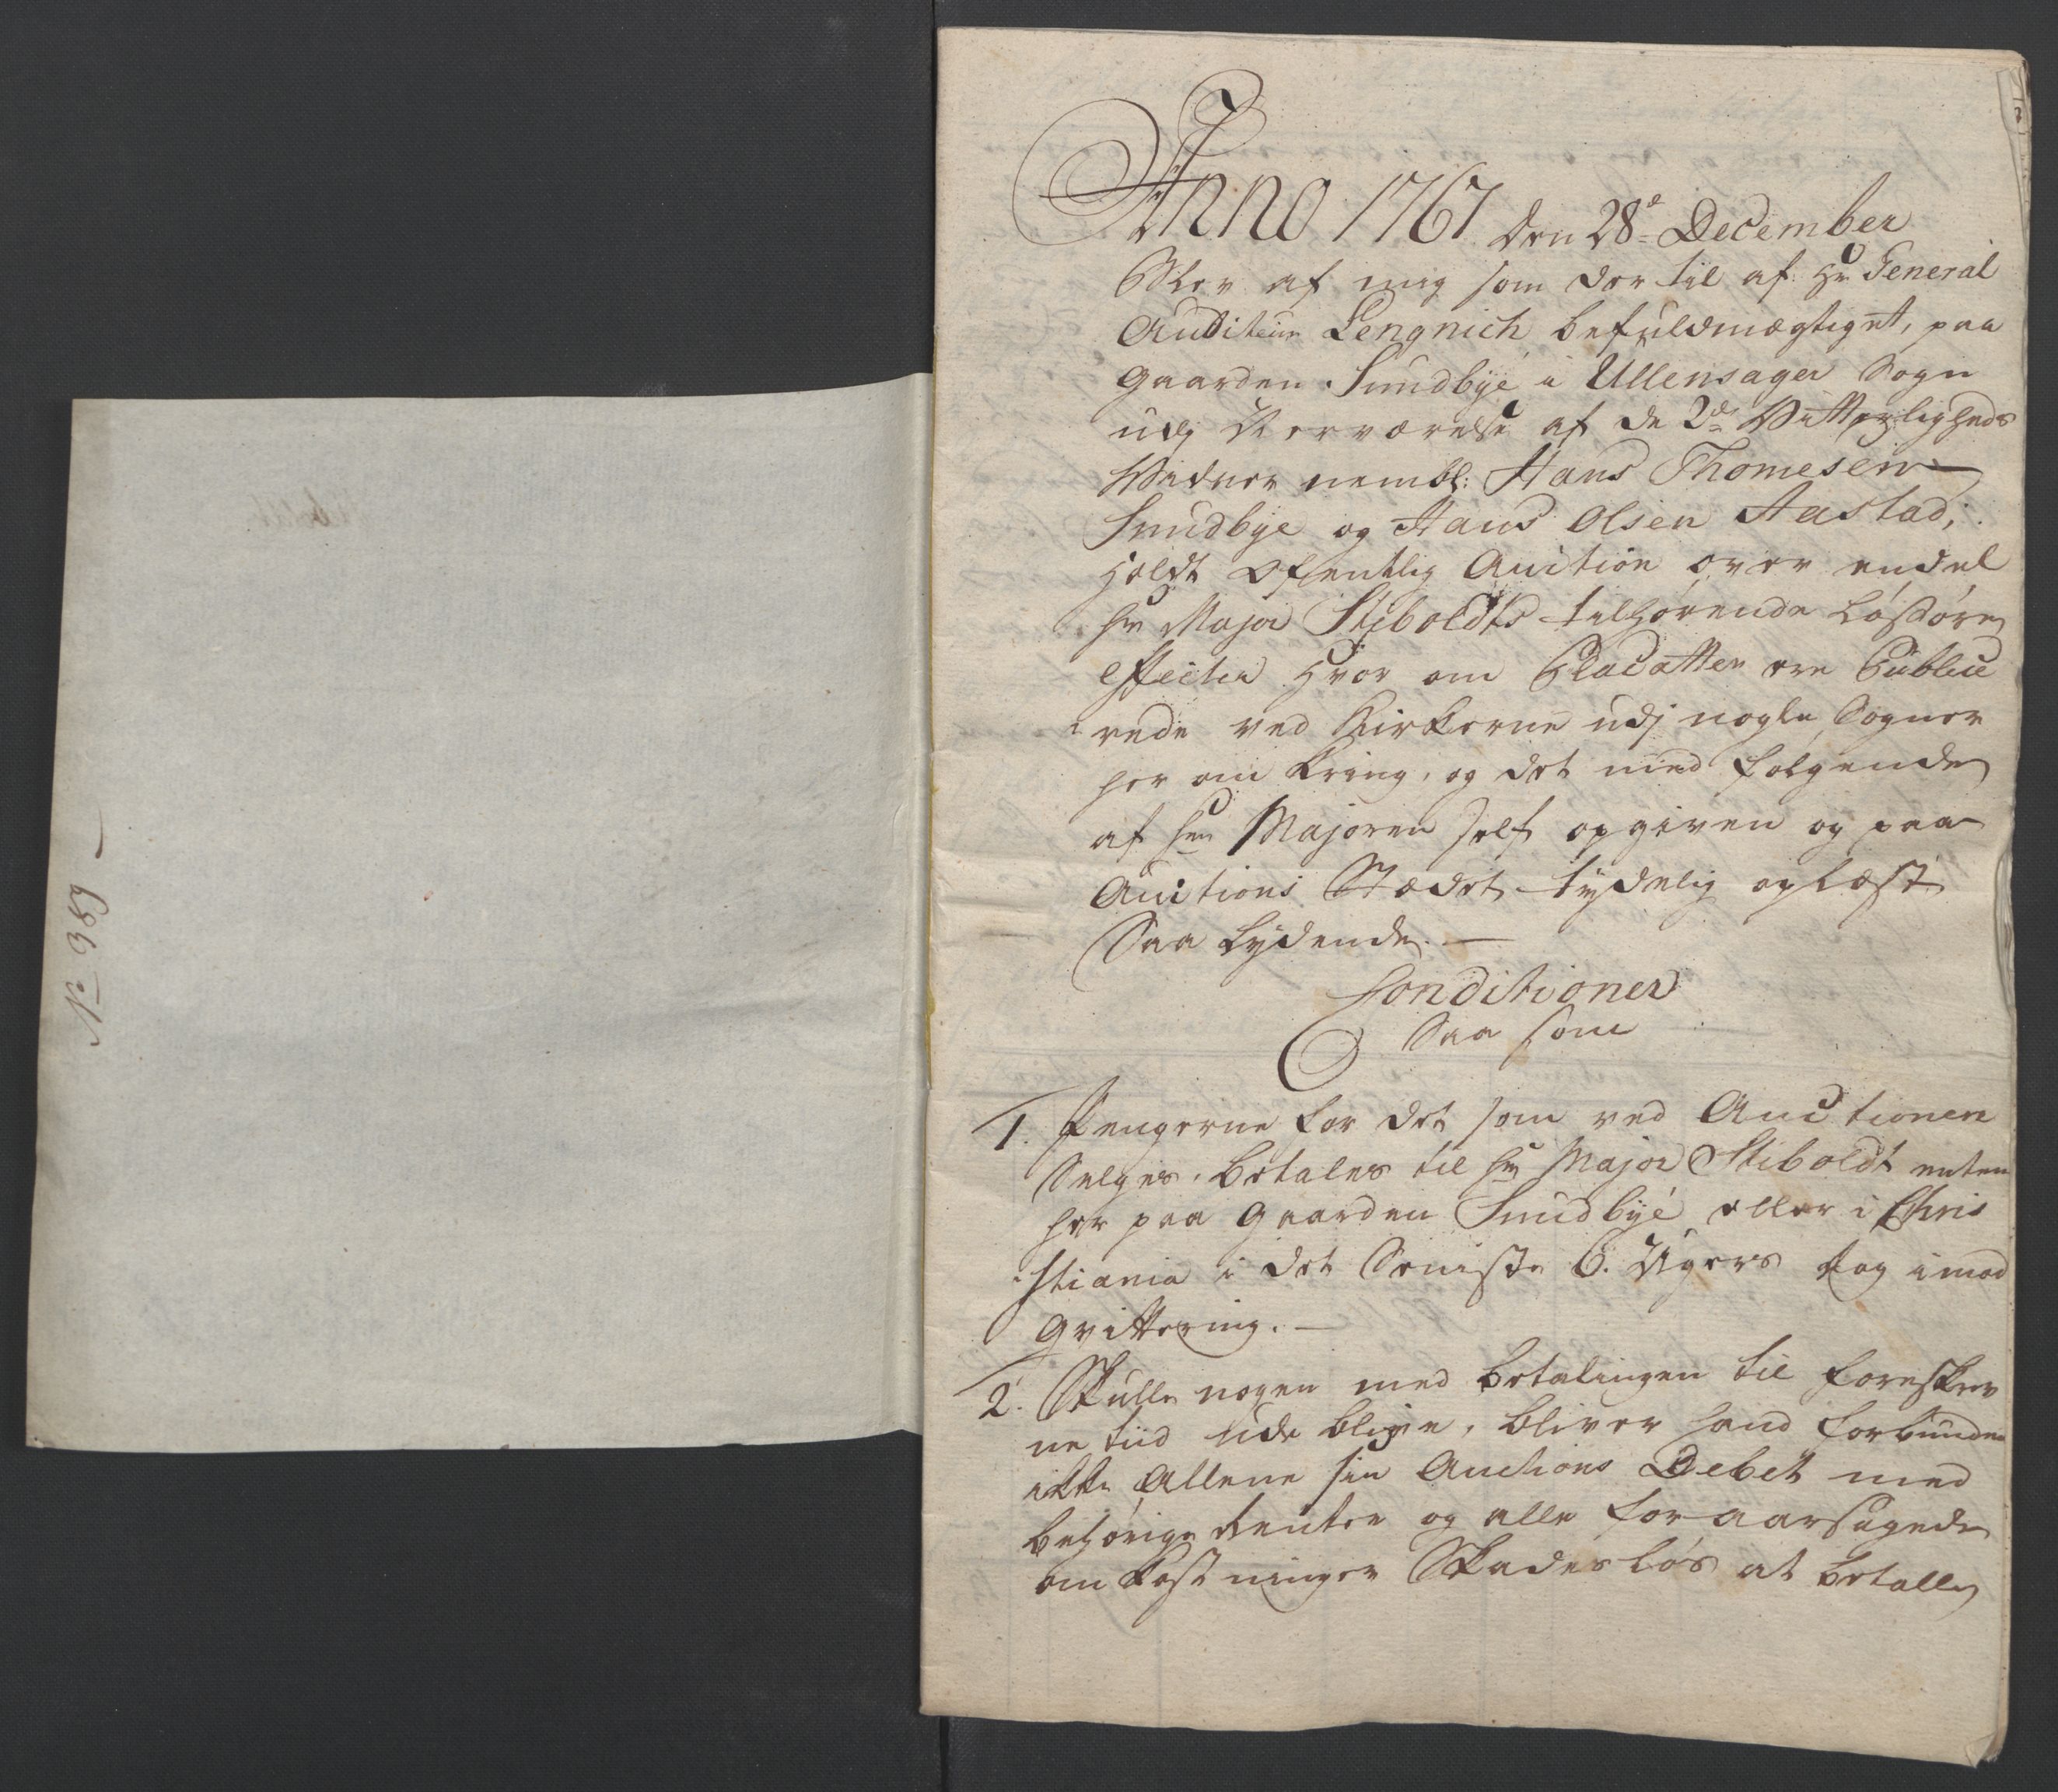 No 389 —
Anno 1767 den 28de December
Blev af mig som der til af Hr General
Auditeur Lengnich befuldmægtiget, paa
Gaarden Sundbye i Ullensager Sogn
udj Nerværelse af de 2de Vitterligheds
Vidner nembl: Hans Thomesen
Sundbye og Hans Olsen Aastad;
Holdt Ofentlig Auction over endel
Hr Major Stiboldts tilhørende Løsøre
Effecter Hvor om Placatter ere Public
rede ved Kirkerne udj nogle Sogner
her om kring, og det med følgende
af Hr Majoren self opgiven og paa
Auctions Stædet tydelig oplæst
Saa lydende. —
Conditioner
Saa som
1. Pengerne for det som ved Auctionen
Selges, betales til Hr Major Stiboldt enten
her paa Gaarden Sundbye eller i Chris
stiania i det Seniste 6. Ugers dag imod
Qvittering. —
2. Skulle nogen med betalingen til foreskrev
ne tiid ude blive, bliver hand forbunden
ikke Allene sin Auctions Debet med
behørige Renter og alle for aarsagede
om kostninger Skadesløs at betalle